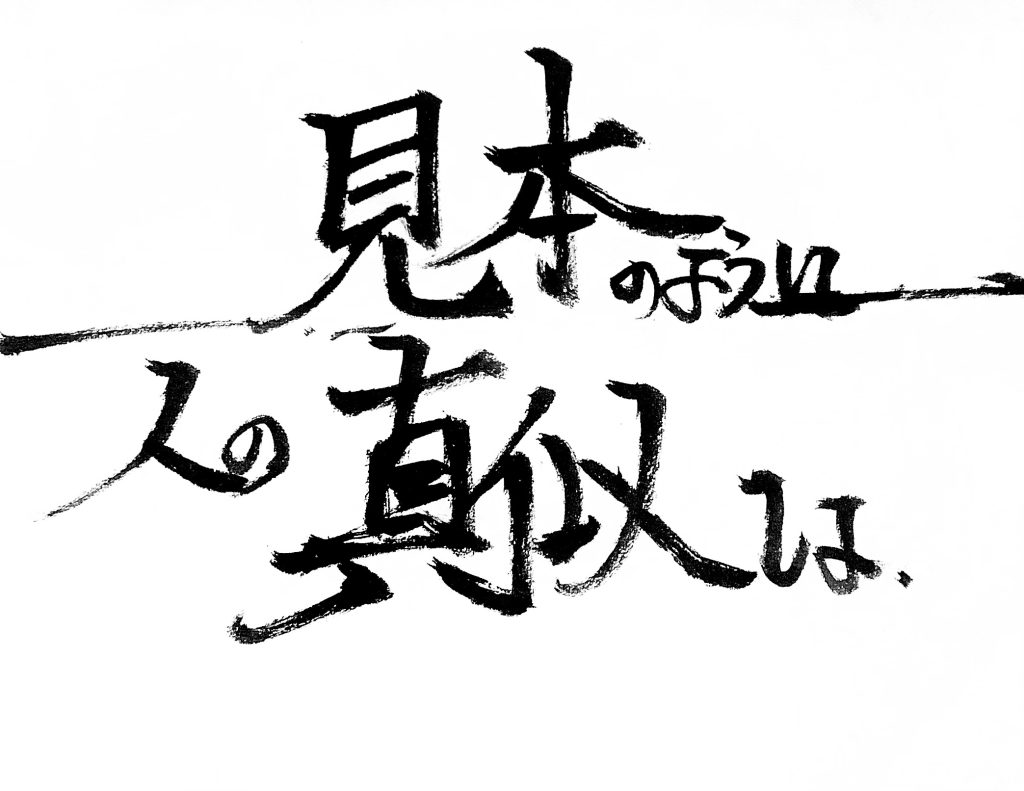 見本のように
人の真似は.